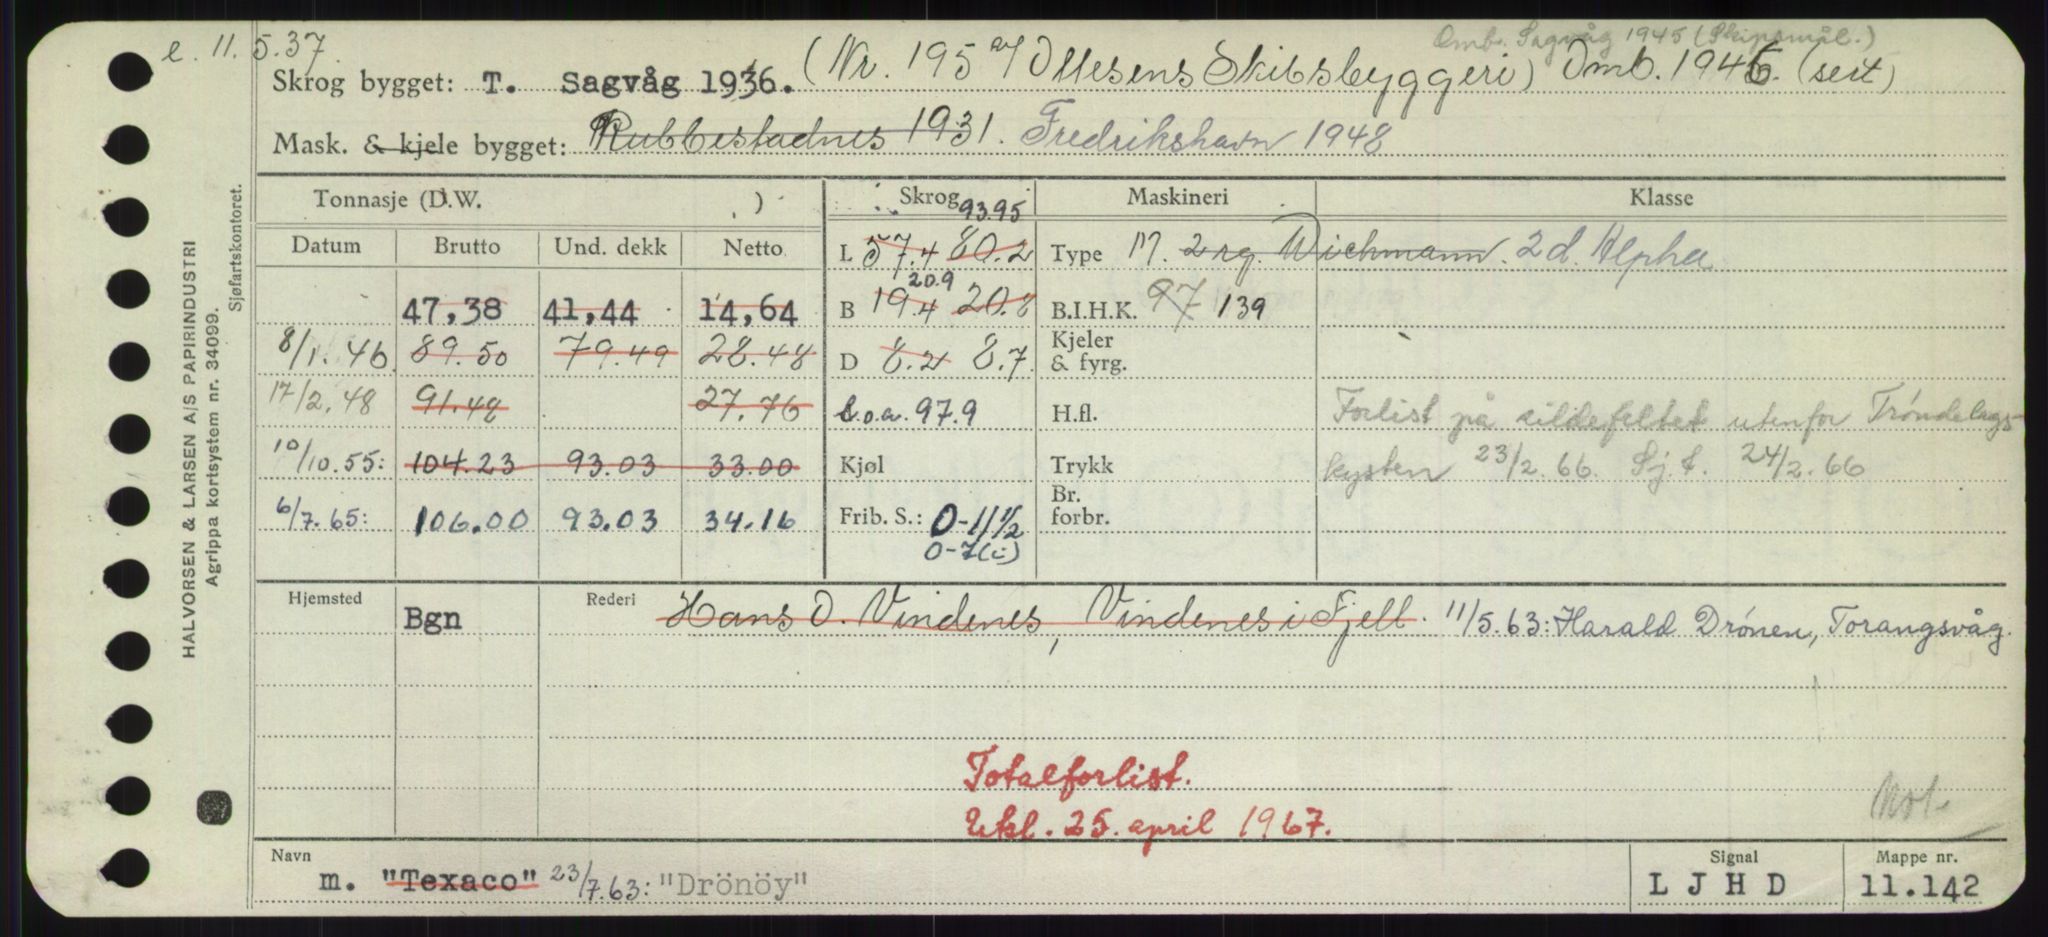 e. 11.5.37.
Omb. Sagvåg 1945 (Skipsmål.)
Skrog bygget: T. Sagvåg 1936. (Nr. 195 av Ottesens Skibsbyggeri) Omb. 1946. (sert)
Mask. & kjele bygget: Rubbestadnes 1931. Fredrikshavn 1948
Tonnasje (D.W. ) Skrog Maskineri Klasse
93.95
Datum Brutto Und. dekk Netto L 57.4 80.2 Type M. 2 rg. Wichmann. 2 d. Alpha
20.9
47,38 41,44 14,64 B 19.4 20.8 B.I.H.K. 97 139
8/1.46 89.50 79.49 28.48 D 8.2 8.7 Kjeler & fyrg.
17/2.48 91.48 27.76 L.o.a. 97.9 H.fl. Forlist på sildefeltet utenfor Trøndelags-
10/10.55: 104.23 93.03 33.00 Kjøl Trykk kysten 23/2.66. Sj.f. 24/2.66
6/7.65: 106.00 93.03 34.16 Frib. S.: 0-11 1/2 Br. forbr.
0-7(i)
Hjemsted Bgn Rederi Hans O. Vindenes, Vindenes i Fjell. 11/5.63: Harald Drönen, Torangsvåg.
Totalforlist.
Ukl. 25. april 1967.
Not.
Navn Signal Mappe nr.
m. "Texaco" 23/7.63: "Drönöy" L J H D 11.142
HALVORSEN & LARSEN A/S PAPIRINDUSTRI
Agrippa kortsystem nr. 34099.
Sjøfartskontoret.